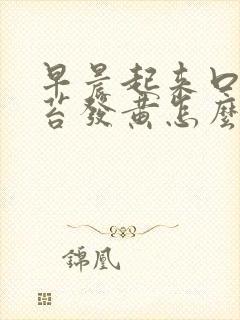 早晨起来口
苔發黄怎麼
錦凰